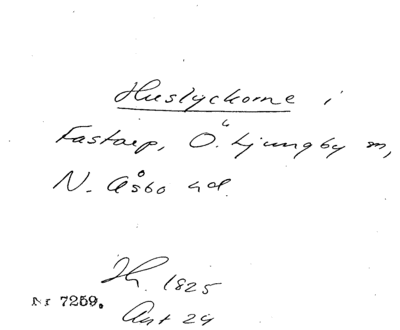 Huslyckorne i
Fastarp, Ö. Ljungby m,
N. Åsbo hd.
Hh. 1825
Nr 7259.
Akt 24